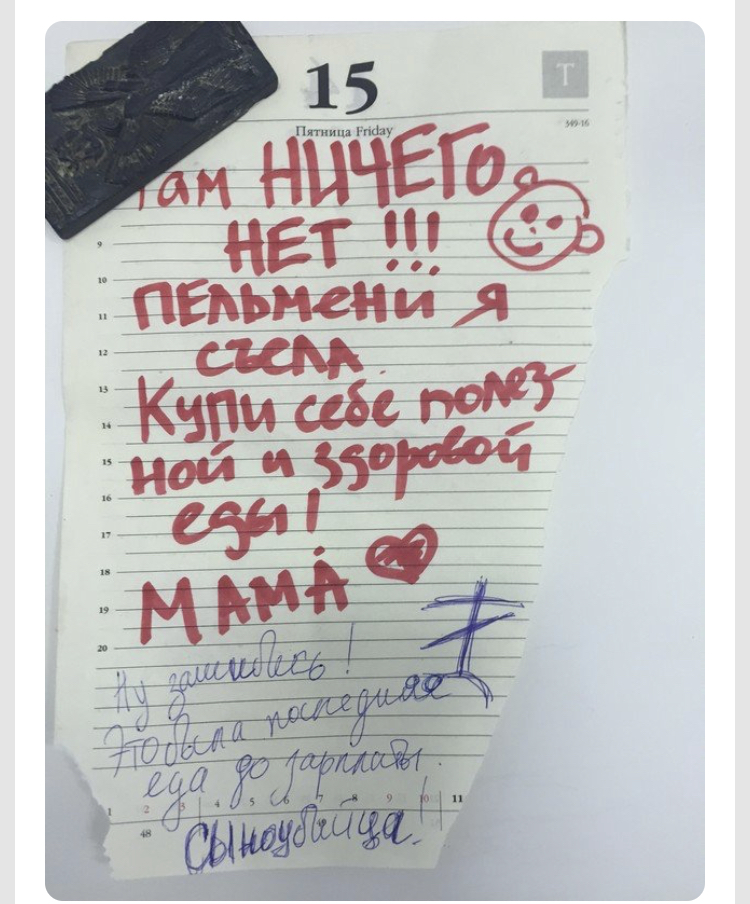 15
T
Пятница Friday
349-16
Там НИЧЕГО
НЕТ !!!
ПЕЛЬМЕНИ Я
СЪЕЛА
КУПИ себе полез-
ной и здоровой
еды!
МАМА
9
10
11
12
13
14
15
16
17
18
19
20
Ну зашибись!
Это была последняя
еда до зарплаты.
1 2 3 4 5 6 7 8 9 10 11
48
Сыноубийца!